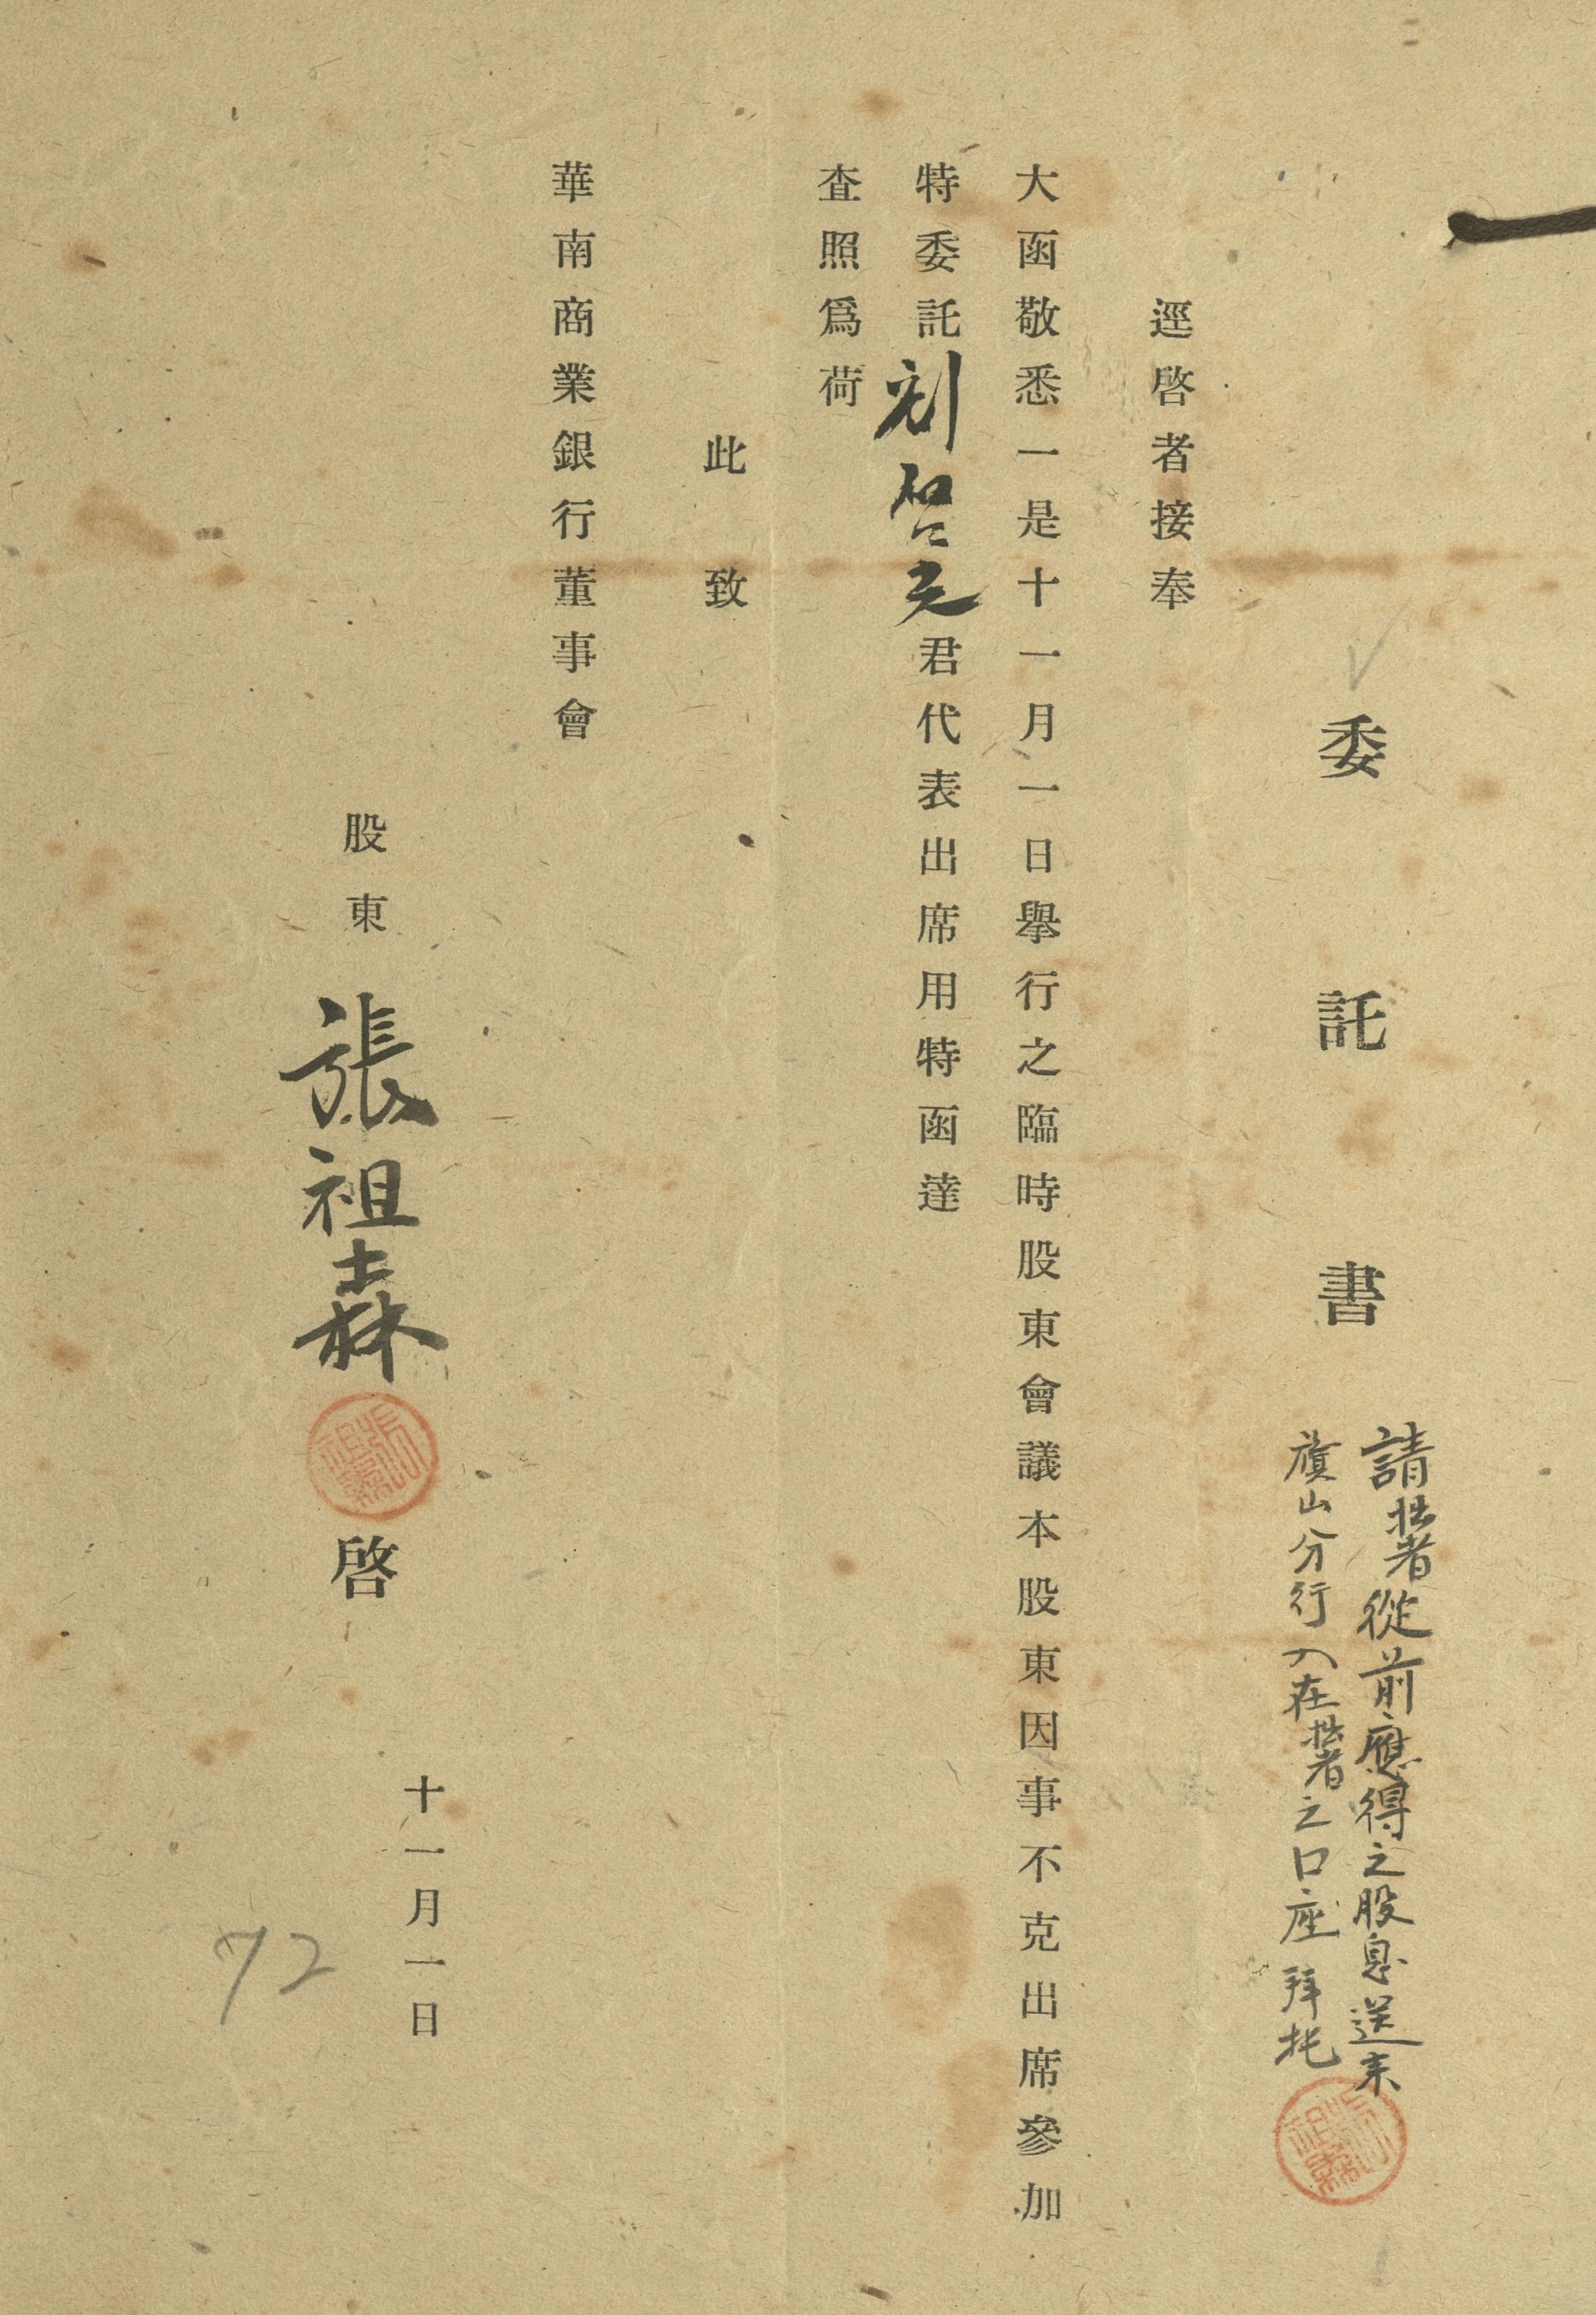 委託書
請拙者從前應得之股息送来
旗山分行入在拙者之口座拜托
逕啓者接奉
大函敬悉一是十一月一日擧行之臨時股東會議本股東因事不克出席參加
特委託劉啓光君代表出席用特函達
査照爲荷
此致
華南商業銀行董事會
股東 張祖森 啓
十一月一日
72